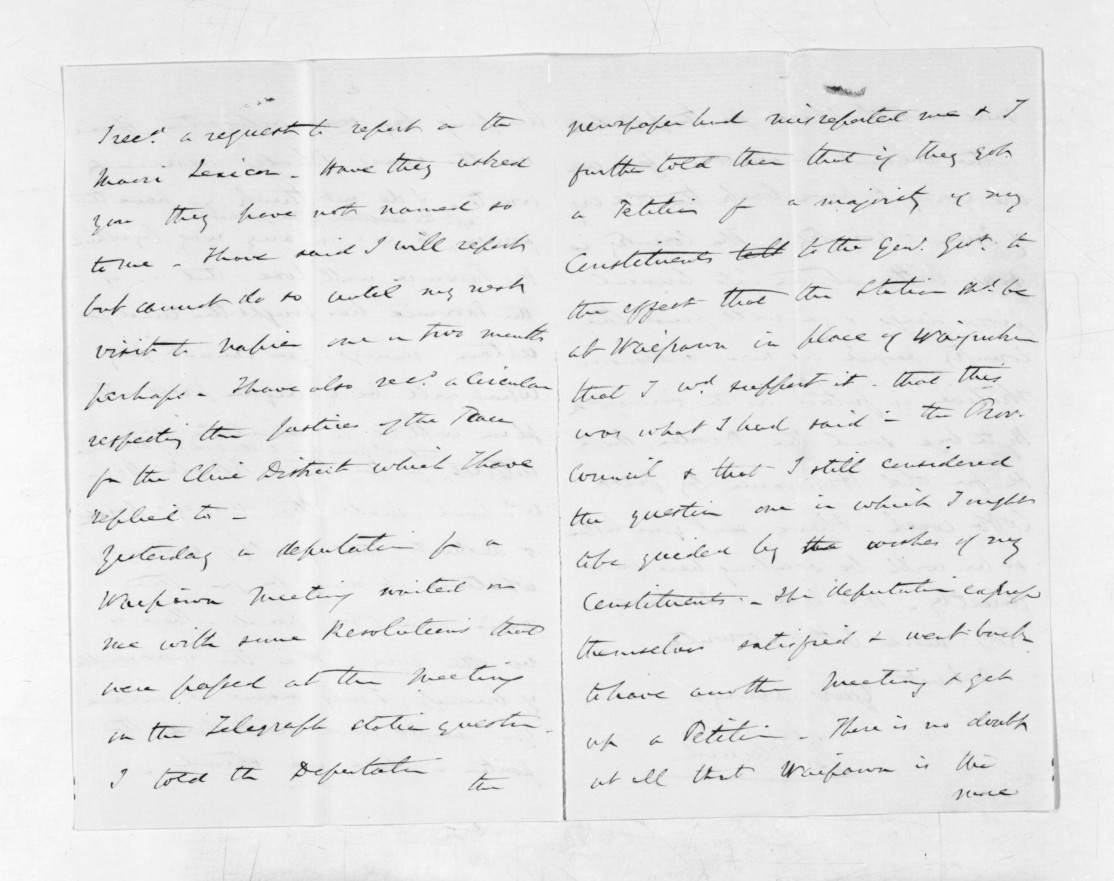 I recd. a request to report on the
Maori Lexicon - Have they asked
you they have not named so
to me - I have said I will report
but cannot do so until my next
visit to Napier one or two months
perhaps - I have also recd. a Circular
respecting the Justices of the Peace
for the Clive District which I have
replied to -
Yesterday a deputation fm a
Waipawa Meeting waited on
me with some Resolutions that
were passed at the Meeting
on the Telegraph station question -
I told the Deputation the
newspaper had misreported me & I
further told them that if they got
a Petition fm a majority of my
Constituents tell to the Genl. Govt. to
the effect that the Station shd. be
at Waipawa in place of
that I wd. support it - that this
was what I had said in the Prov.
Council & that I still considered
the question one in which I ought
to be guided by the wishes of my
Constituents - The deputation expressed
themselves satisfied & went back
to have another Meeting & get
up a Petition - There is no doubt
at all that Waipawa is the
more